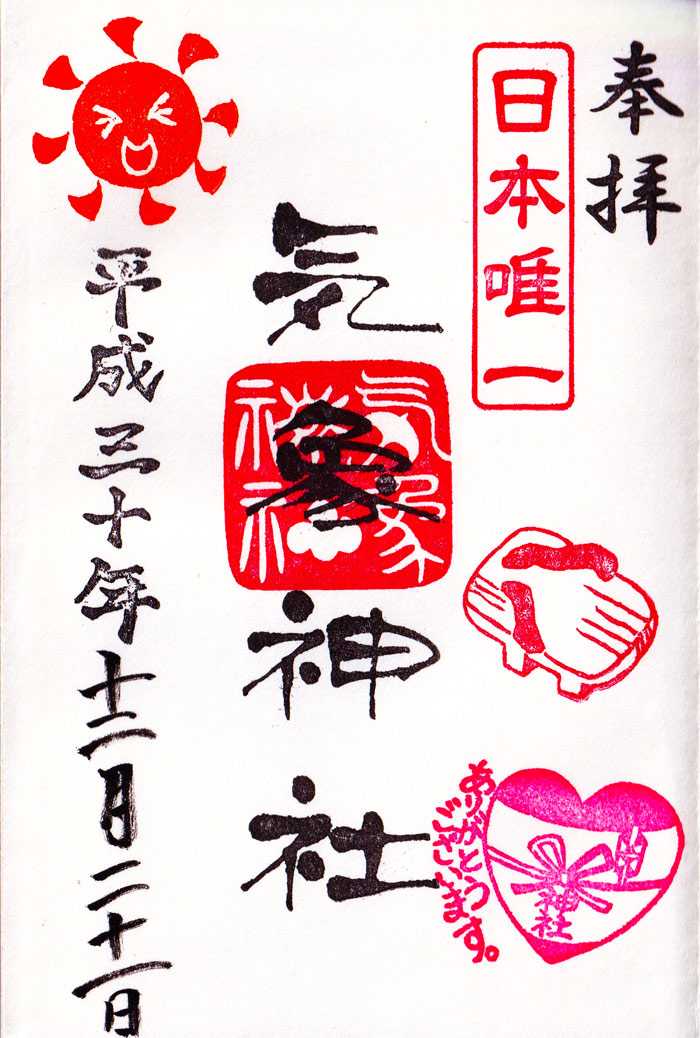 奉拝
日本唯一
気象神社
気象
神社
ありがとう
ございます。
神社
平成三十年十二月二十一日